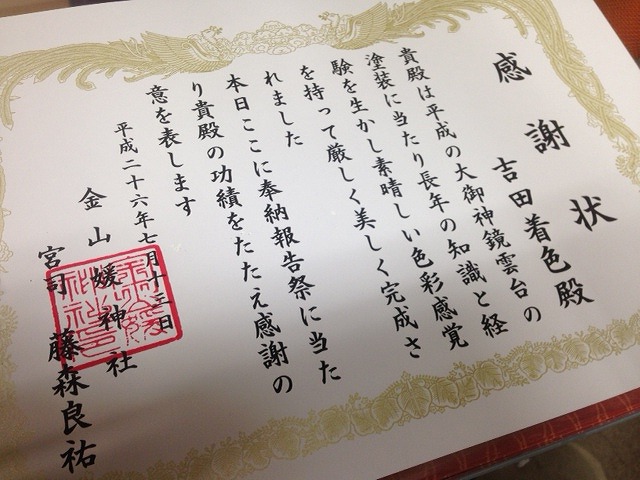 感謝状
吉田着色殿
貴殿は平成の大御神鏡雲台の
塗装に当たり長年の知識と経
験を生かし素晴しい色彩感覚
を持って厳しく美しく完成さ
れました
本日ここに奉納報告祭に当た
り貴殿の功績をたたえ感謝の
意を表します
平成二十六年七月十三日
金山媛神社
宮司 藤森良祐